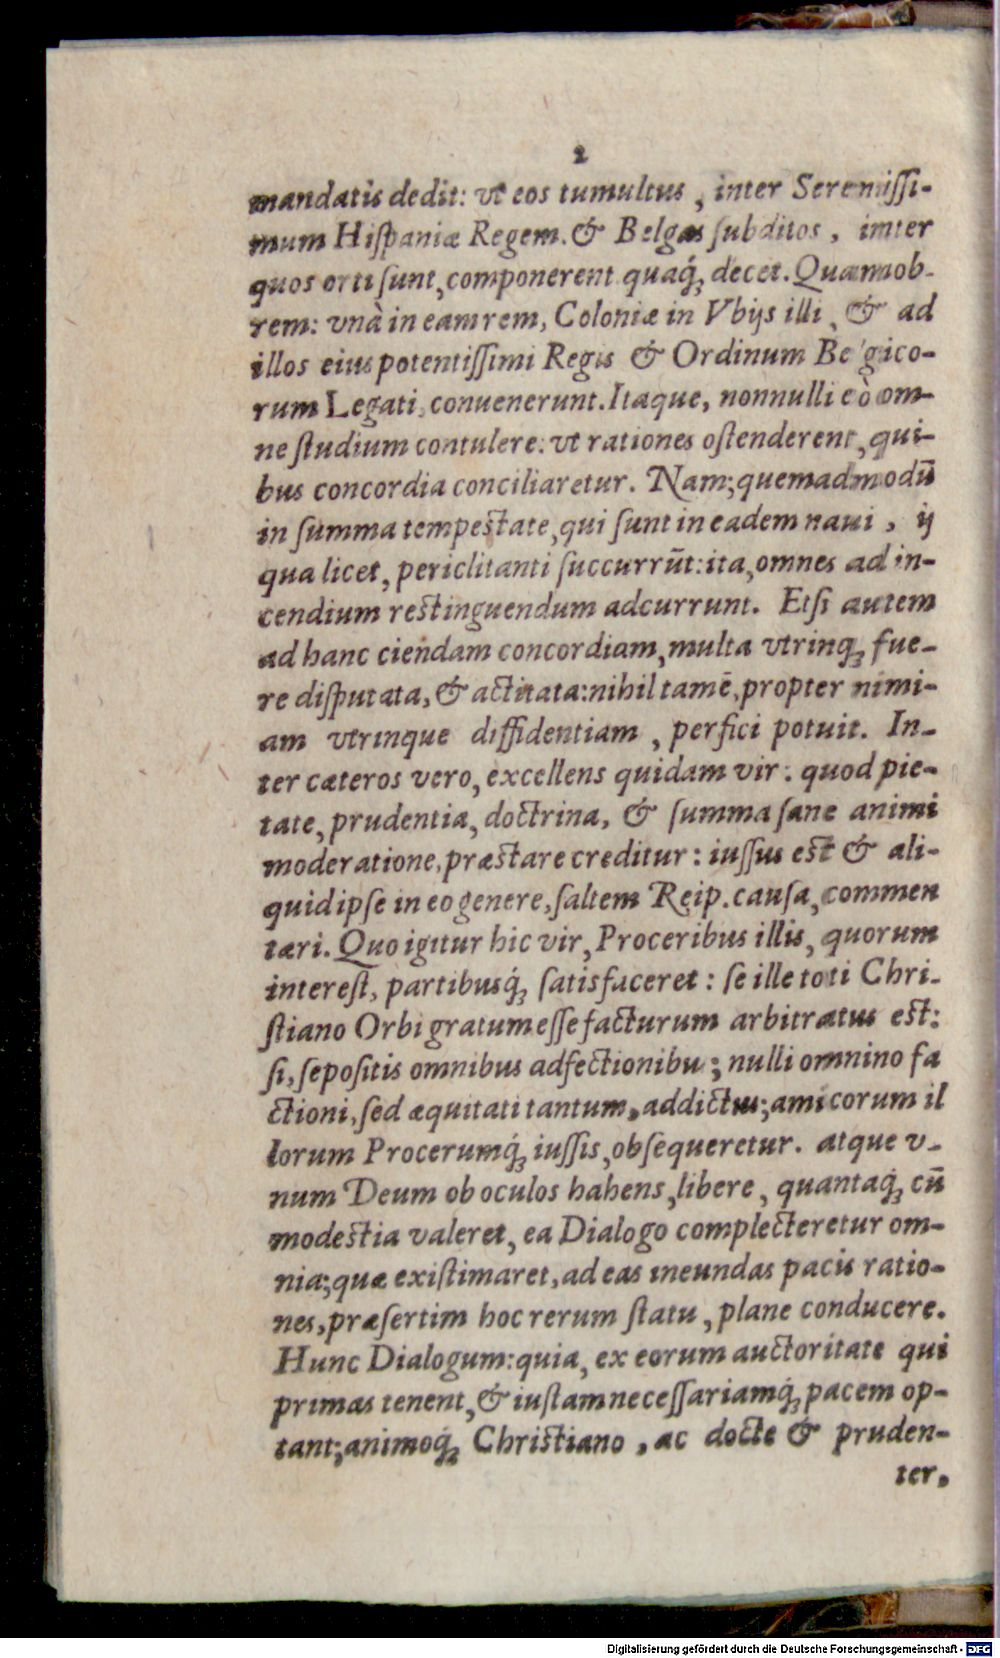 2
mandatis dedit: vt eos tumultus, inter Serenissi-
mum Hispaniæ Regem. & Belgas subditos, inter
quos orti sunt, componerent quaq́; decet. Quamob-
rem: vnà in eam rem, Coloniæ in Vbijs illi, & ad
illos eius potentissimi Regis & Ordinum Belgico-
rum Legati, conuenerunt. Itaque, nonnulli eò om-
ne studium contulere: vt rationes ostenderent, qui-
bus concordia conciliaretur. Nam; quemadmodū
in summa tempestate, qui sunt in eadem naui, ij
qua licet, periclitanti succurrūt: ita, omnes ad in-
cendium restinguendum adcurrunt. Etsi autem
ad hanc ciendam concordiam, multa vtrinq; fue-
re disputata, & actitata: nihil tamē, propter nimi-
am vtrinque diffidentiam, perfici potuit. In-
ter cæteros vero, excellens quidam vir: quod pie-
tate, prudentia, doctrina, & summa sane animi
moderatione, præstare creditur: iussus est & ali-
quid ipse in eo genere, saltem Reip. causa, commen
tari. Quo igitur hic vir, Proceribus illis, quorum
interest, partibusq́; satisfaceret: se ille toti Chri-
stiano Orbi gratum esse facturum arbitratus est:
si, sepositis omnibus adfectionibus; nulli omnino fa
ctioni, sed æquitati tantum, addictus; amicorum il
lorum Procerumq́; iussis, obsequeretur. atque v-
num Deum ob oculos habens, libere, quantaq́; cū
modestia valeret, ea Dialogo complecteretur om-
nia; quæ existimaret, ad eas ineundas pacis ratio-
nes, præsertim hoc rerum statu, plane conducere.
Hunc Dialogum: quia, ex eorum auctoritate qui
primas tenent, & iustam necessariamq́; pacem op-
tant; animoq́; Christiano, ac docte & pruden-
ter,
Digitalisierung gefördert durch die Deutsche Forschungsgemeinschaft - DFG